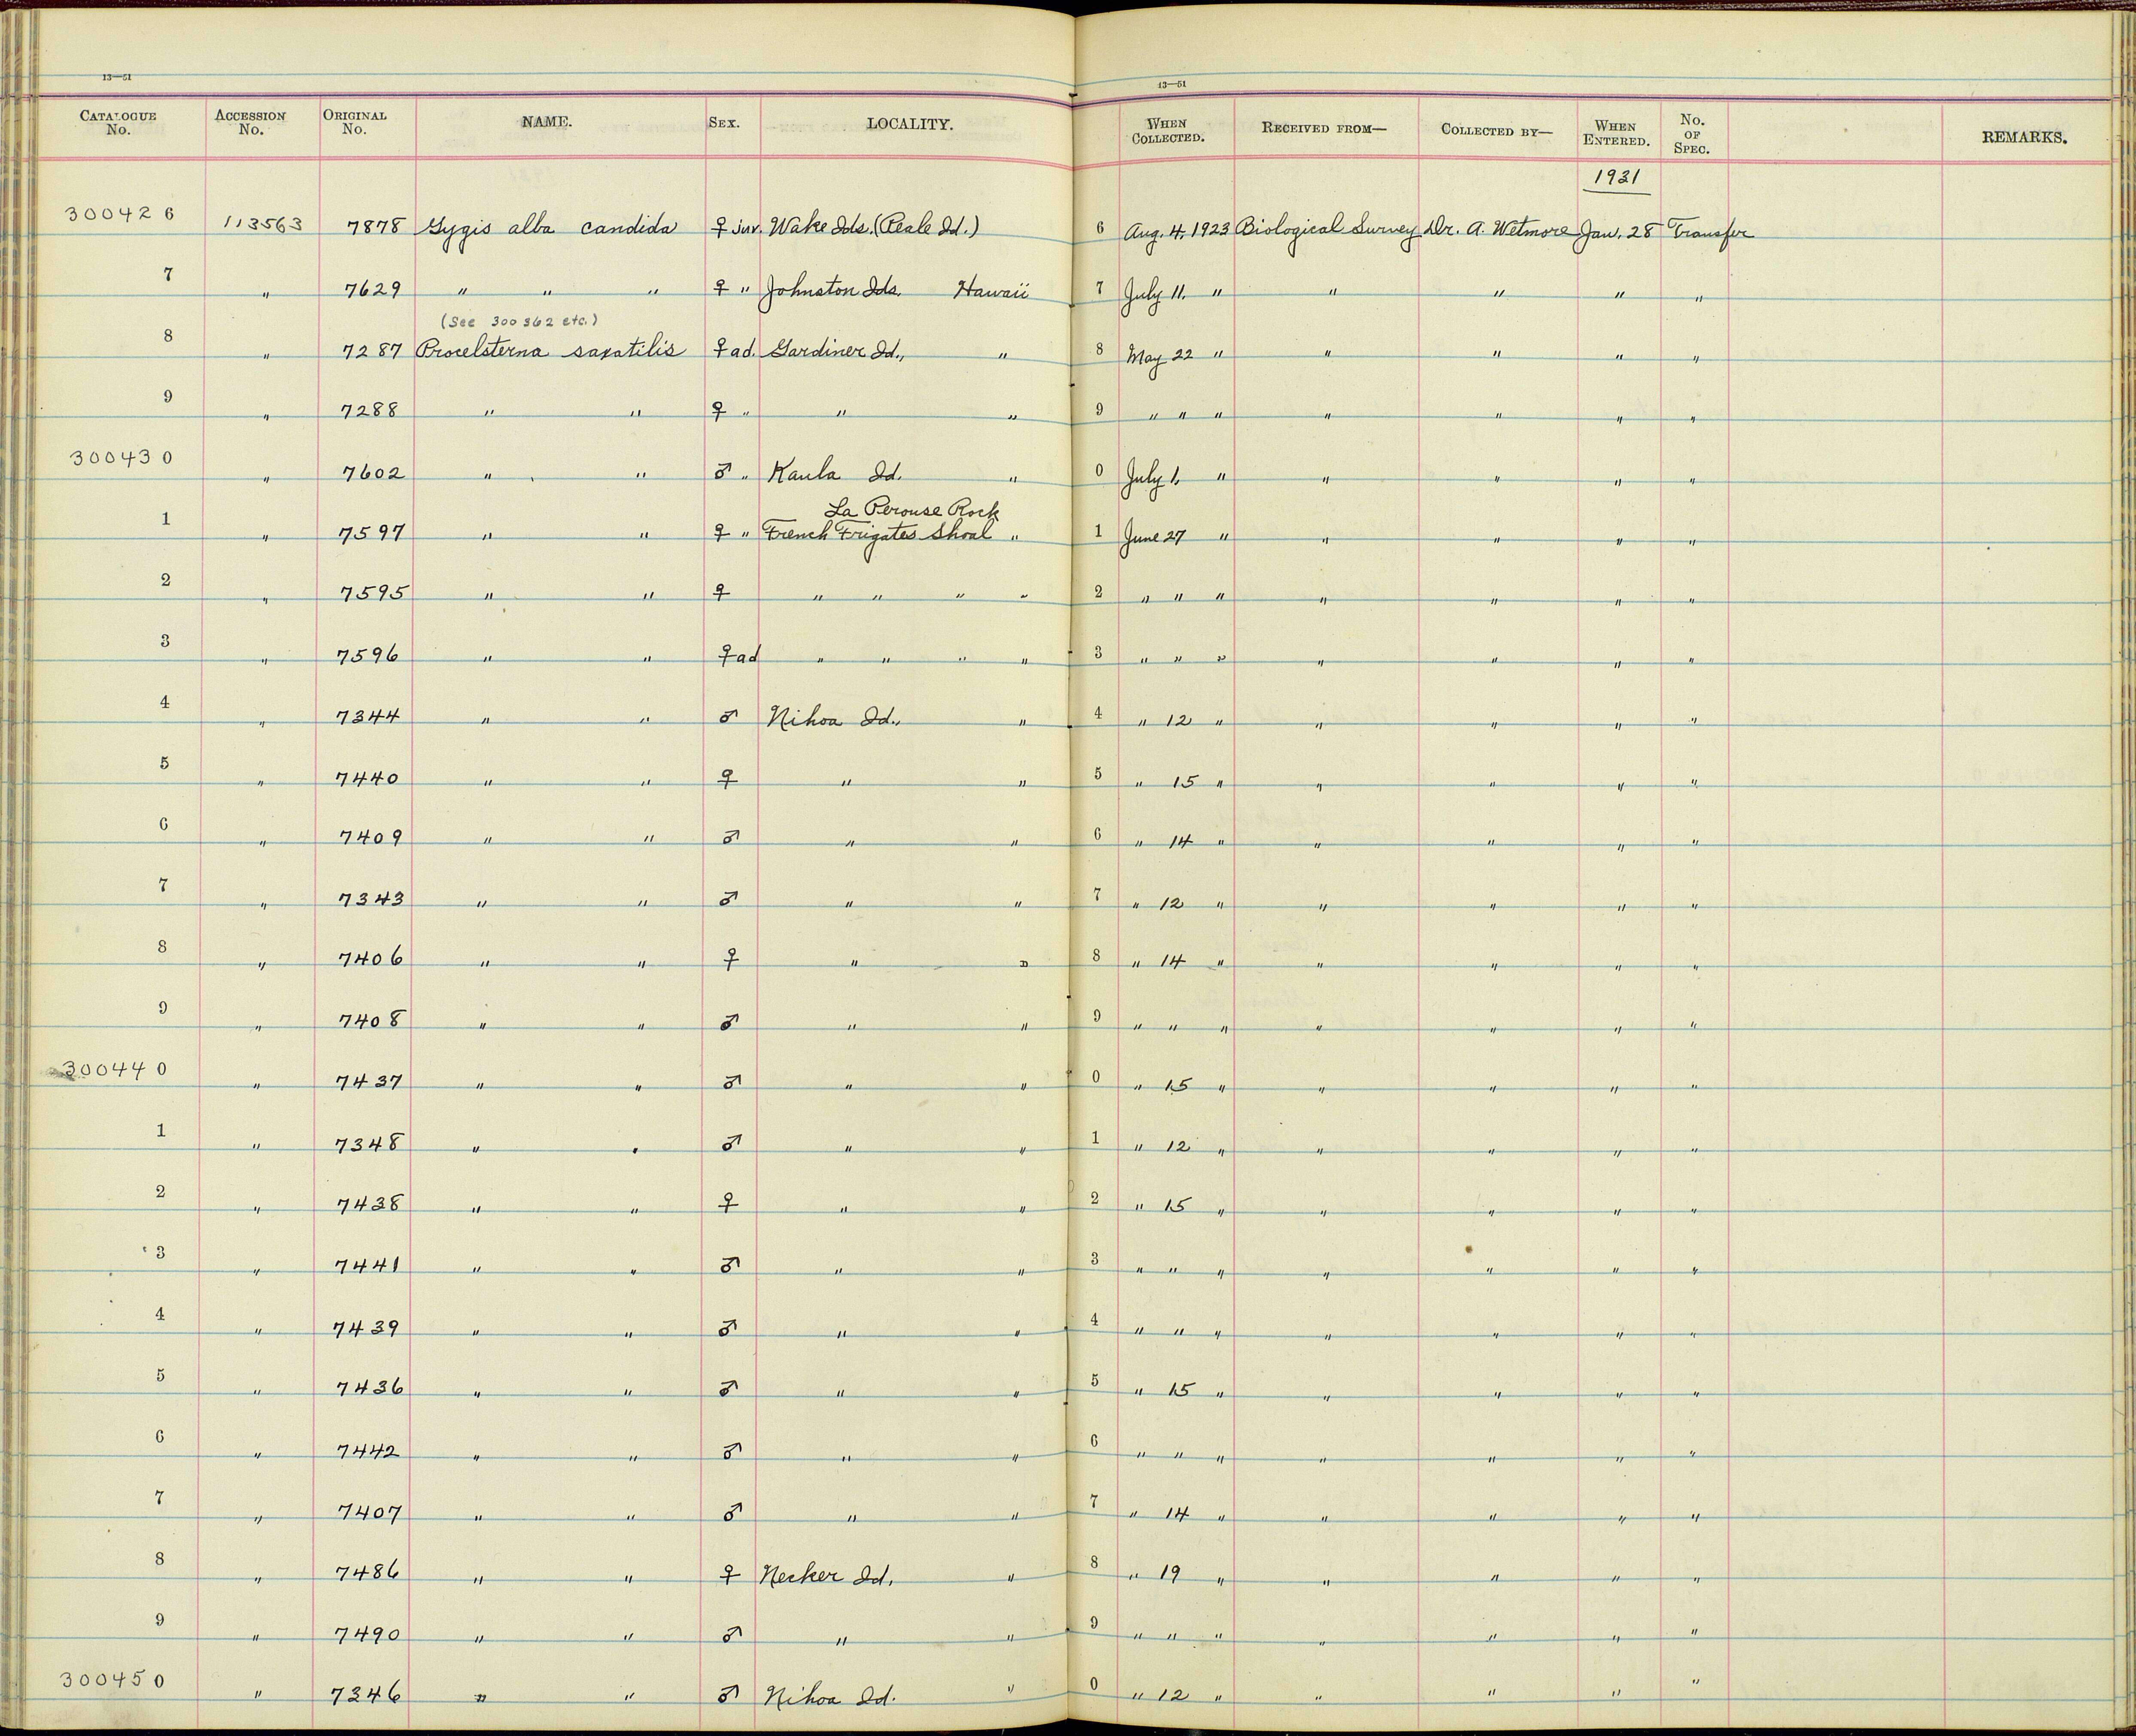 13—51
13—51
CATALOGUE No. ACCESSION No. ORIGINAL No. NAME. SEX. LOCALITY. WHEN COLLECTED. RECEIVED FROM— COLLECTED BY— WHEN ENTERED. No. OF SPEC. REMARKS.
1931
300426 113563 7878 Gygis alba candida ♀ juv. Wake Ids. (Peale Id.) 6 Aug. 4, 1923 Biological Survey Dr. A. Wetmore Jan. 28 Transfer
7 " 7629 " " " ♀ " Johnston Ids. Hawaii 7 July 11, " " " " "
(See 300362 etc.)
8 " 7287 Procelsterna saxatilis ♀ ad. Gardiner Id., " 8 May 22 " " " " "
9 " 7288 " " ♀ " " " 9 " " " " " " "
300430 " 7602 " " ♂ " Kaula Id. " 0 July 1, " " " " "
La Perouse Rock
1 " 7597 " " ♀ " French Frigates Shoal " 1 June 27 " " " " "
2 " 7595 " " ♀ " " " " 2 " " " " " " "
3 " 7596 " " ♀ ad " " " " 3 " " " " " " "
4 " 7344 " " ♂ Nihoa Id., " 4 " 12 " " " " "
5 " 7440 " " ♀ " " 5 " 15 " " " " "
6 " 7409 " " ♂ " " 6 " 14 " " " " "
7 " 7343 " " ♂ " " 7 " 12 " " " " "
8 " 7406 " " ♀ " " 8 " 14 " " " " "
9 " 7408 " " ♂ " " 9 " " " " " " "
300440 " 7437 " " ♂ " " 0 " 15 " " " " "
1 " 7348 " " ♂ " " 1 " 12 " " " " "
2 " 7438 " " ♀ " " 2 " 15 " " " " "
3 " 7441 " " ♂ " " 3 " " " " " " "
4 " 7439 " " ♂ " " 4 " " " " " " "
5 " 7436 " " ♂ " " 5 " 15 " " " " "
6 " 7442 " " ♂ " " 6 " " " " " " "
7 " 7407 " " ♂ " " 7 " 14 " " " " "
8 " 7486 " " ♀ Necker Id. " 8 " 19 " " " " "
9 " 7490 " " ♂ " " 9 " " " " " " "
300450 " 7346 " " ♂ Nihoa Id. " 0 " 12 " " " " "